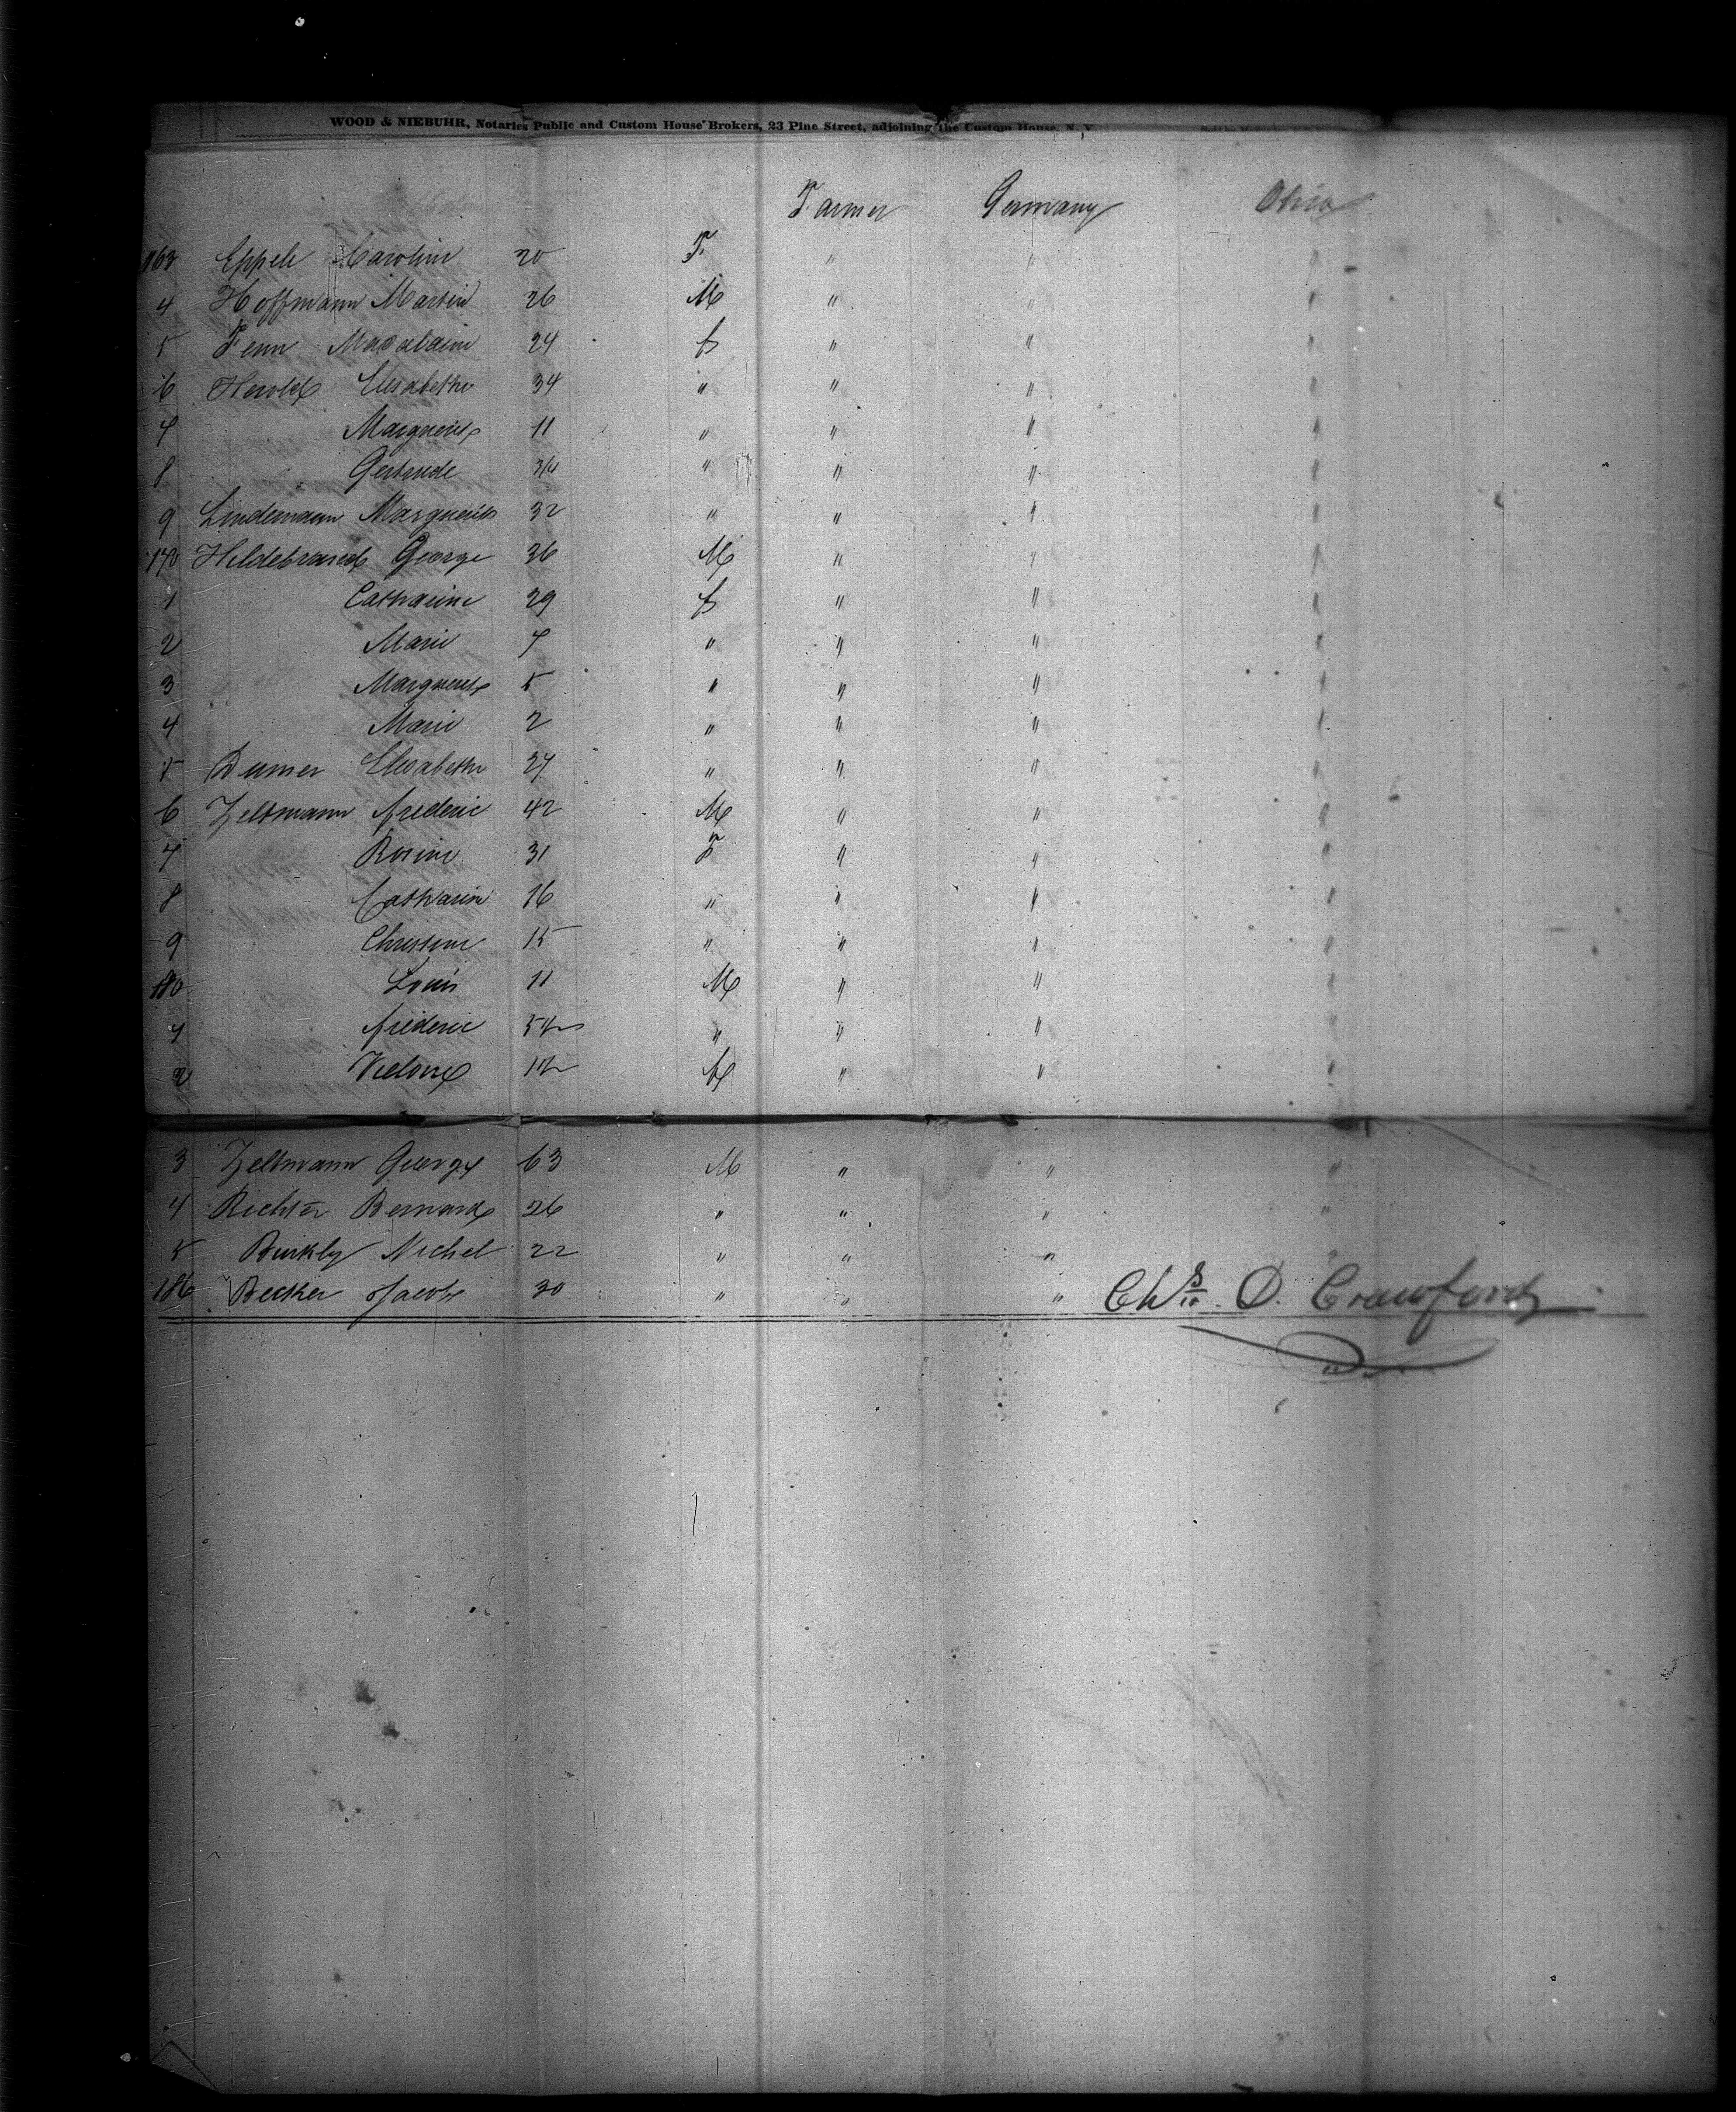 WOOD & NIEBUHR, Notaries Public and Custom House Brokers, 23 Pine Street, adjoining the Custom House, N. Y.
Farmer Germany Ohio
163 Eppele Caroline 20 F. " " "
4 Hoffmann Martin 26 M " " "
5 Fenn 24 f " " "
6 Herold Elisabethe 34 " " " "
7 Marguerite 11 " " " "
8 Gertrude " " " "
9 Lindemann Marguerite 32 " " " "
170 Hildebrand George 36 M " " "
1 Catharine 29 f " " "
2 Marie 7 " " " "
3 Marguerite 5 " " " "
4 Marie 2 " " " "
5 Elisabethe 27 " " " "
6 Zeltmann frederic 42 M " " "
7 Rosine 31 F " " "
8 Catharine 16 " " " "
9 Christine 15 " " " "
180 Louis 11 M " " "
1 frederic " " " "
2 " " "
3 Zeltmann George 63 M " " "
4 Richter Bernard 26 " " " "
5 Burkly Michel 22 " " " "
186 Becker Jacob 30 " " "
Chs. D. Crawford